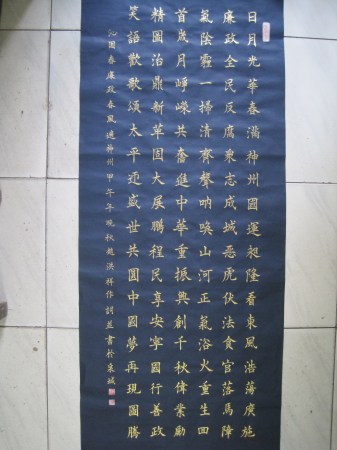 日月光華春滿神州國運昶隆看東風浩蕩廣施
廉政全民反腐衆志成城惡虎伏法貪官落馬障
氣陰霾一掃清齊聲吶喚山河正氣浴火重生四
首歲月崢嶸共奮進中華重振興創千秋偉業勵
精圖治鼎新革固大展鵬程民享安寧國行善政
笑語歡歌頌太平逕盛世共圓中國夢再現圖騰
沁園春廉政春風遍神州甲午年晚秋趙洪祥作詞並書於東城